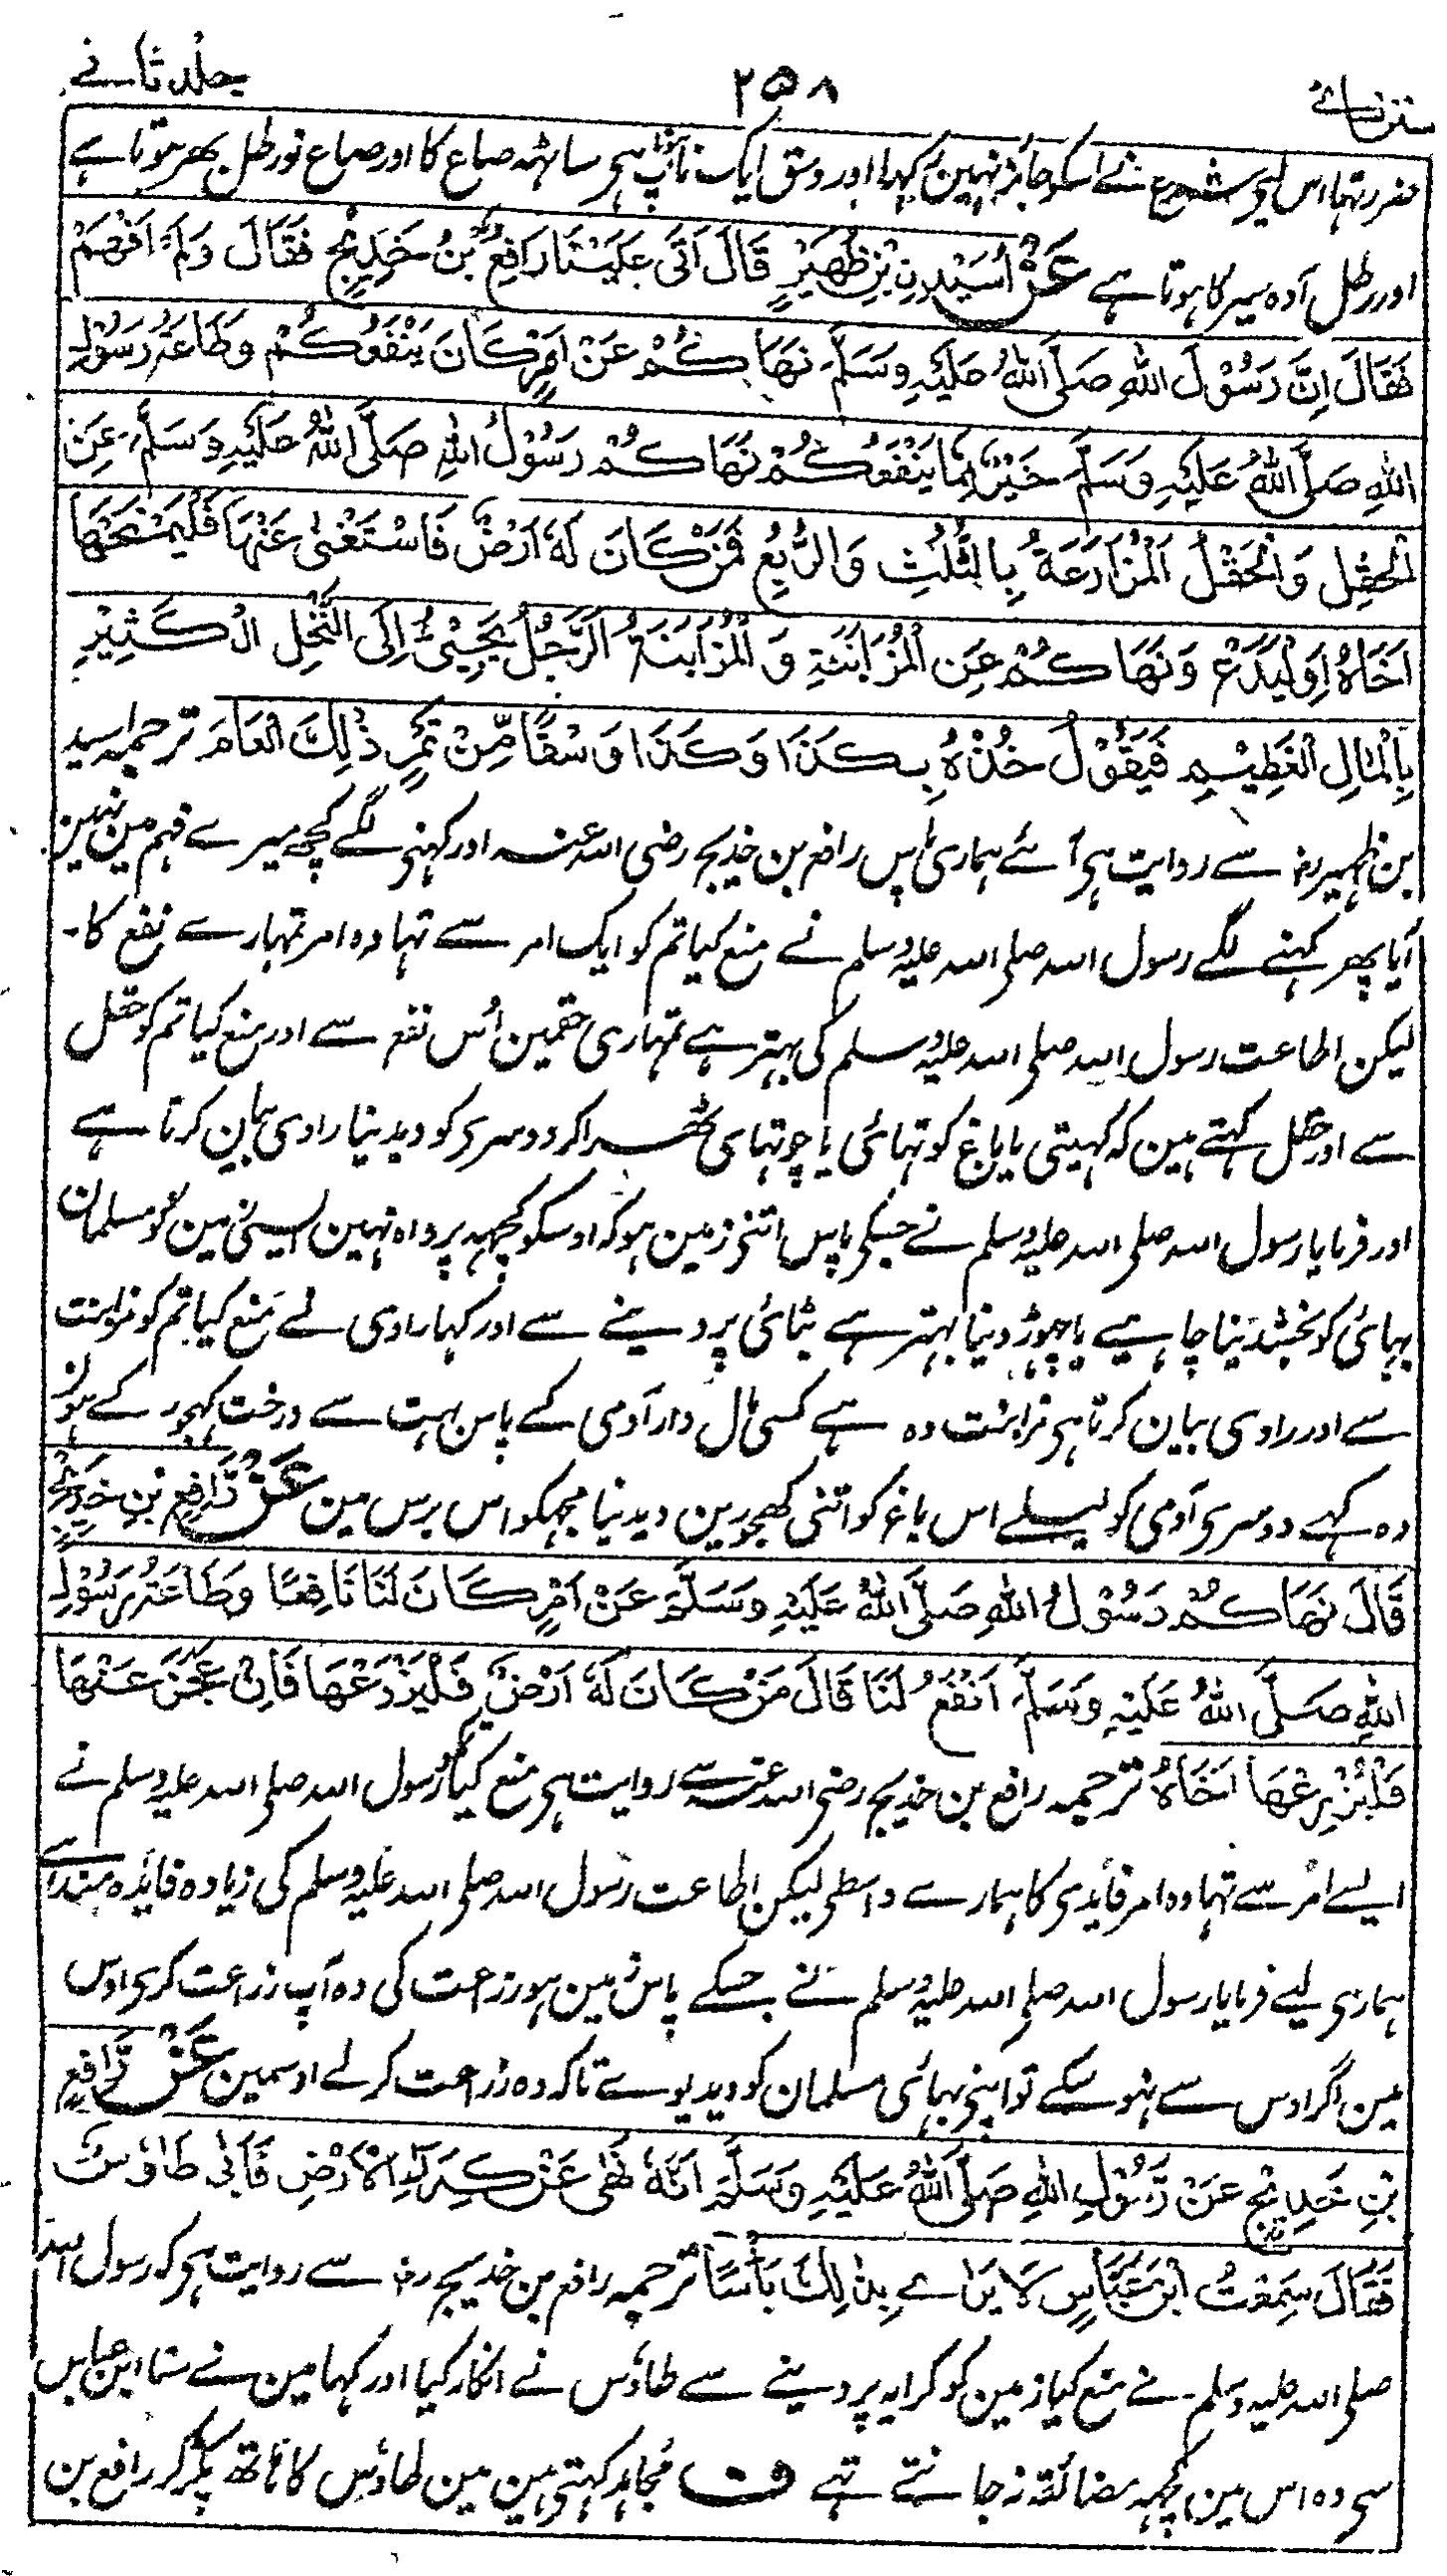 سنن نسائے ۲۵۸ جلد ثانے
ضرر تہا اس لیے شرع نے اسکو جائز نہین کہا اور وسق ایک ناپ ہی ساٹہہ صاع کا اور صاع نو رطل بھر ہوتا ہے
اور رطل آدہ سیر کا ہوتا ہے عَنْ اُسَیْدِ بْنِ ظُهَیْرٍ قَالَ اَتٰی عَلَیْنَا رَافِعُ بْنُ خَدِیْجٍ فَقَالَ وَلَمْ اَفْهَمْ
فَقَالَ اِنَّ رَسُوْلَ اللهِ صَلَّی اللهُ عَلَیْهِ وَسَلَّمَ نَهَاكُمْ عَنْ اَمْرٍ كَانَ یَنْفَعُكُمْ وَطَاعَةُ رَسُوْلِ
اللهِ صَلَّی اللهُ عَلَیْهِ وَسَلَّمَ خَیْرٌ مِمَّا یَنْفَعُكُمْ نَهَاكُمْ رَسُوْلُ اللهِ صَلَّی اللهُ عَلَیْهِ وَسَلَّمَ عَنِ
الْحَقْلِ وَالْحَقْلُ اَلْمُزَارَعَةُ بِالثُّلُثِ وَالرُّبُعِ فَمَنْ كَانَ لَهٗ اَرْضٌ فَاسْتَغْنٰی عَنْهَا فَلْیَمْنَحْهَا
اَخَاهُ اَوْ لِیَدَعْ وَنَهَاكُمْ عَنِ الْمُزَابَنَةِ وَالْمُزَابَنَةُ الرَّجُلُ یَجِیْئُ اِلَی النَّخْلِ الْكَثِیْرِ
بِالْمَالِ الْعَظِیْمِ فَیَقُوْلُ خُذْهُ بِكَذَا وَكَذَا وَسْقًا مِّنْ تَمْرِ ذٰلِكَ الْعَامِ ترجمہ اسید
بن ظہیر رض سے روایت ہی آئے ہماری پاس رافع بن خدیج رضی اللہ عنہ اور کہنی لگے کچہ میرے فہم مین نہین
آیا پھر کہنے لگے رسول اللہ صلی اللہ علیہ وسلم نے منع کیا تم کو ایک امر سے تہا وہ امر تمہارے نفع کا۔
لیکن اطاعت رسول اللہ صلی اللہ علیہ وسلم کی بہتر ہے تمہاری حقمین اُس نفع سے اور منع کیا تم کو حقل
سے اور حقل کہتے ہین کہ کہیتی یا باغ کو تہائی یا چوتہای ٹہرا کر دوسری کو دیدینا راوی بیان کرتا ہے
اور فرمایا رسول اللہ صلی اللہ علیہ وسلم نے جسکی پاس اتنی زمین ہو کہ اوسکو کچہہ پرواہ نہین ایسی زمین کو مسلمان
بہائی کو بخشدینا چاہیے یا چہوڑ دینا بہتر ہے بٹائی پر دینے سے اور کہا راوی نے منع کیا تم کو مزابنت
سے اور راوی بیان کرتا ہی مزابنت وہ ہے کسی مال دار آدمی کے پاس بہت سے درخت کہجور کے ہون
وہ کہے دوسری آدمی کو لیلے اس باغ کو اتنی کھجورین دیدینا مجہکو اس برس مین عَنْ رَّافِعِ بْنِ خَدِیْجٍ
قَالَ نَهَاكُمْ رَسُوْلُ اللهِ صَلَّی اللهُ عَلَیْهِ وَسَلَّمَ عَنْ اَمْرٍ كَانَ لَنَا نَافِعًا وَطَاعَةُ رَسُوْلِ
اللهِ صَلَّی اللهُ عَلَیْهِ وَسَلَّمَ اَنْفَعُ لَنَا قَالَ مَنْ كَانَ لَهٗ اَرْضٌ فَلْیَزْرَعْهَا فَاِنْ عَجَزَ عَنْهَا
فَلْیُزْرِعْهَا اَخَاهُ ترجمہ رافع بن خدیج رضی اللہ عنہ سے روایت ہی منع کیا رسول اللہ صلی اللہ علیہ وسلم نے
ایسے امر سے تہا وہ امر فایدی کا ہمارے واسطی لیکن اطاعت رسول اللہ صلی اللہ علیہ وسلم کی زیادہ فایدہ مند ہے
ہماری لیے فرمایا رسول اللہ صلی اللہ علیہ وسلم نے جسکے پاس زمین ہو زراعت کی وہ آپ زراعت کری اوس
مین اگر اوس سے نہو سکے تو اپنی بہائی مسلمان کو دیدیوے تاکہ وہ زراعت کرلے اوسمین عَنْ رَّافِعِ
بْنِ خَدِیْجٍ عَنْ رَّسُوْلِ اللهِ صَلَّی اللهُ عَلَیْهِ وَسَلَّمَ اَنَّهٗ نَهٰی عَنْ كِرَاءِ الْاَرْضِ فَاَبٰی طَاؤُسٌ
فَقَالَ سَمِعْتُ ابْنَ عَبَّاسٍ لَا یَرٰے بِذٰلِكَ بَأْسًا ترجمہ رافع بن خدیج رض سے روایت ہی کہ رسول اللہ
صلی اللہ علیہ وسلم نے منع کیا زمین کو کرایہ پر دینے سے طاؤس نے انکار کیا اور کہا مین نے سنا ابن عباس
سی وہ اس مین کچہہ مضائقہ نہ جانتے تہے ف مجاہد کہتی ہین مین طاؤس کا ہاتھ پکڑ کر رافع بن